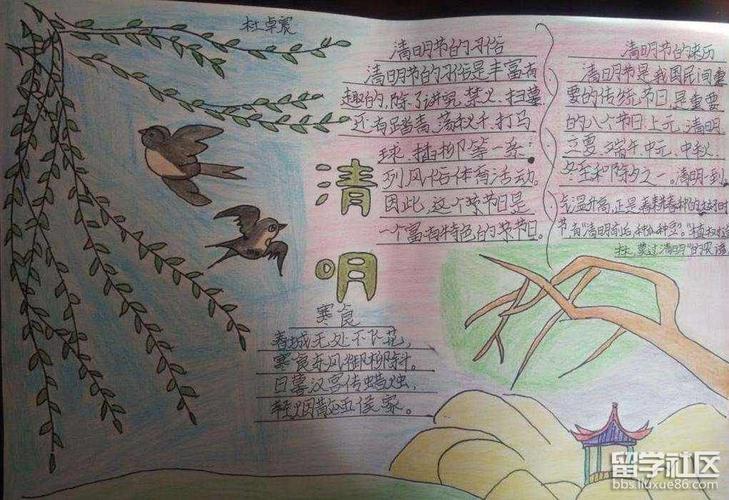 杜卓宸
清明节的习俗
清明节的习俗是丰富有
趣的,除了讲究禁火、扫墓,
还有踏青、荡秋千、打马
球、插柳等一系
列风俗体育活动。
因此,这个节日是
一个富有特色的节日。
清明节的来历
清明节是我国民间重
要的传统节日,是重要
的八个节日:上元、清明、
立夏、端午、中元、中秋、
冬至和除夕之一。清明一到,
气温升高,正是春耕春种的大好时
节,有"清明前后,种瓜种豆"。"植树造
林,莫过清明"的农谚
清明
寒食
春城无处不飞花,
寒食东风御柳斜。
日暮汉宫传蜡烛,
轻烟散五侯家。
留学社区
bbs.liuxue86.com